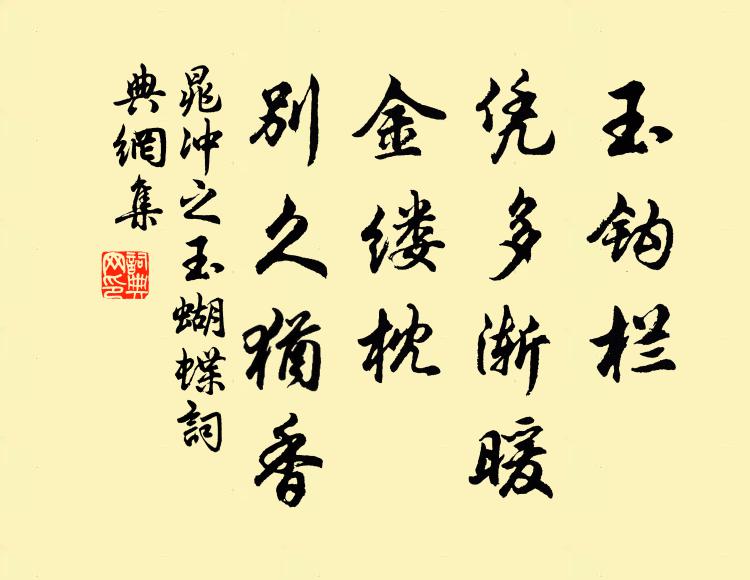 玉钩栏
凭多渐暖
金缕枕
别久犹香
晁冲之玉蝴蝶词
典網集
詞典
网印